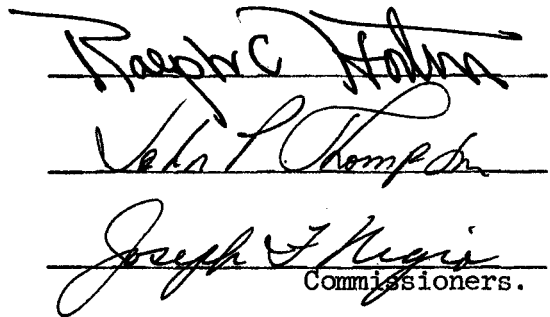 Ralph C
John P Thompson
Joseph F Nigro
Commissioners.